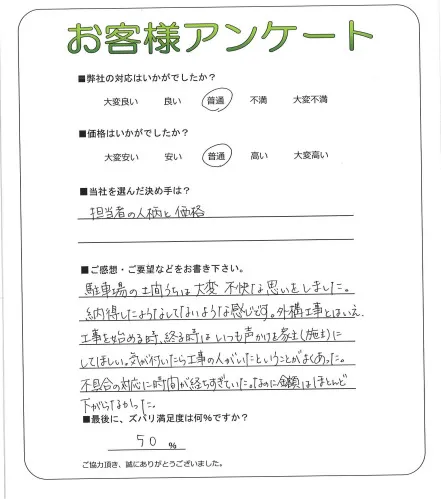 お客様アンケート
■弊社の対応はいかがでしたか？
大変良い 良い 普通 不満 大変不満
■価格はいかがでしたか？
大変安い 安い 普通 高い 大変高い
■当社を選んだ決め手は？
担当者の人柄と価格
■ご感想・ご要望などをお書き下さい。
駐車場の土間うちは大変 不快な思いをしました。
納得したようなしてないような感じです。外構工事とはいえ、
工事を始める時、終る時は いつも声かけを家主(施主)に
してほしい。気が付いたら工事の人がいたということがよくあった。
不具合の対応に時間が経ちすぎていた。なのに金額はほとんど
下がらなかった。
■最後に、ズバリ満足度は何%ですか？
50 %
ご協力頂き、誠にありがとうございました。